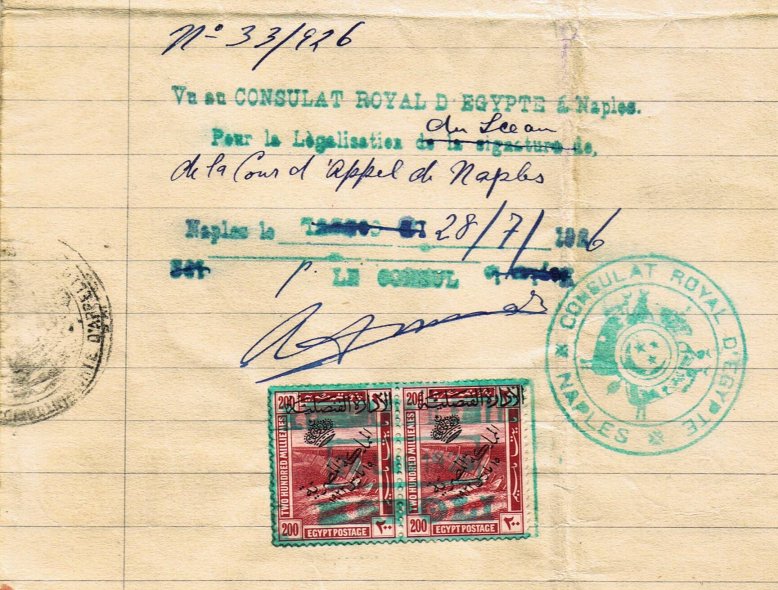 N° 33/926
Vu au CONSULAT ROYAL D EGYPTE á Naples.
du Sceau
Pour la Lègalisation de la signature de,
de la Cour d'Appel de Naples
Naples le 28/7/ 1926
p. LE CONSUL
CONSULAT ROYAL D'EGYPTE
NAPLES
E D'APPELLO
200 الادارة القنصلية
200 الادارة القنصلية
المملكة المصرية
المملكة المصرية
TWO HUNDRED MILLIEMES
TWO HUNDRED MILLIEMES
200 ٢٠٠
EGYPT POSTAGE
200 ٢٠٠
EGYPT POSTAGE